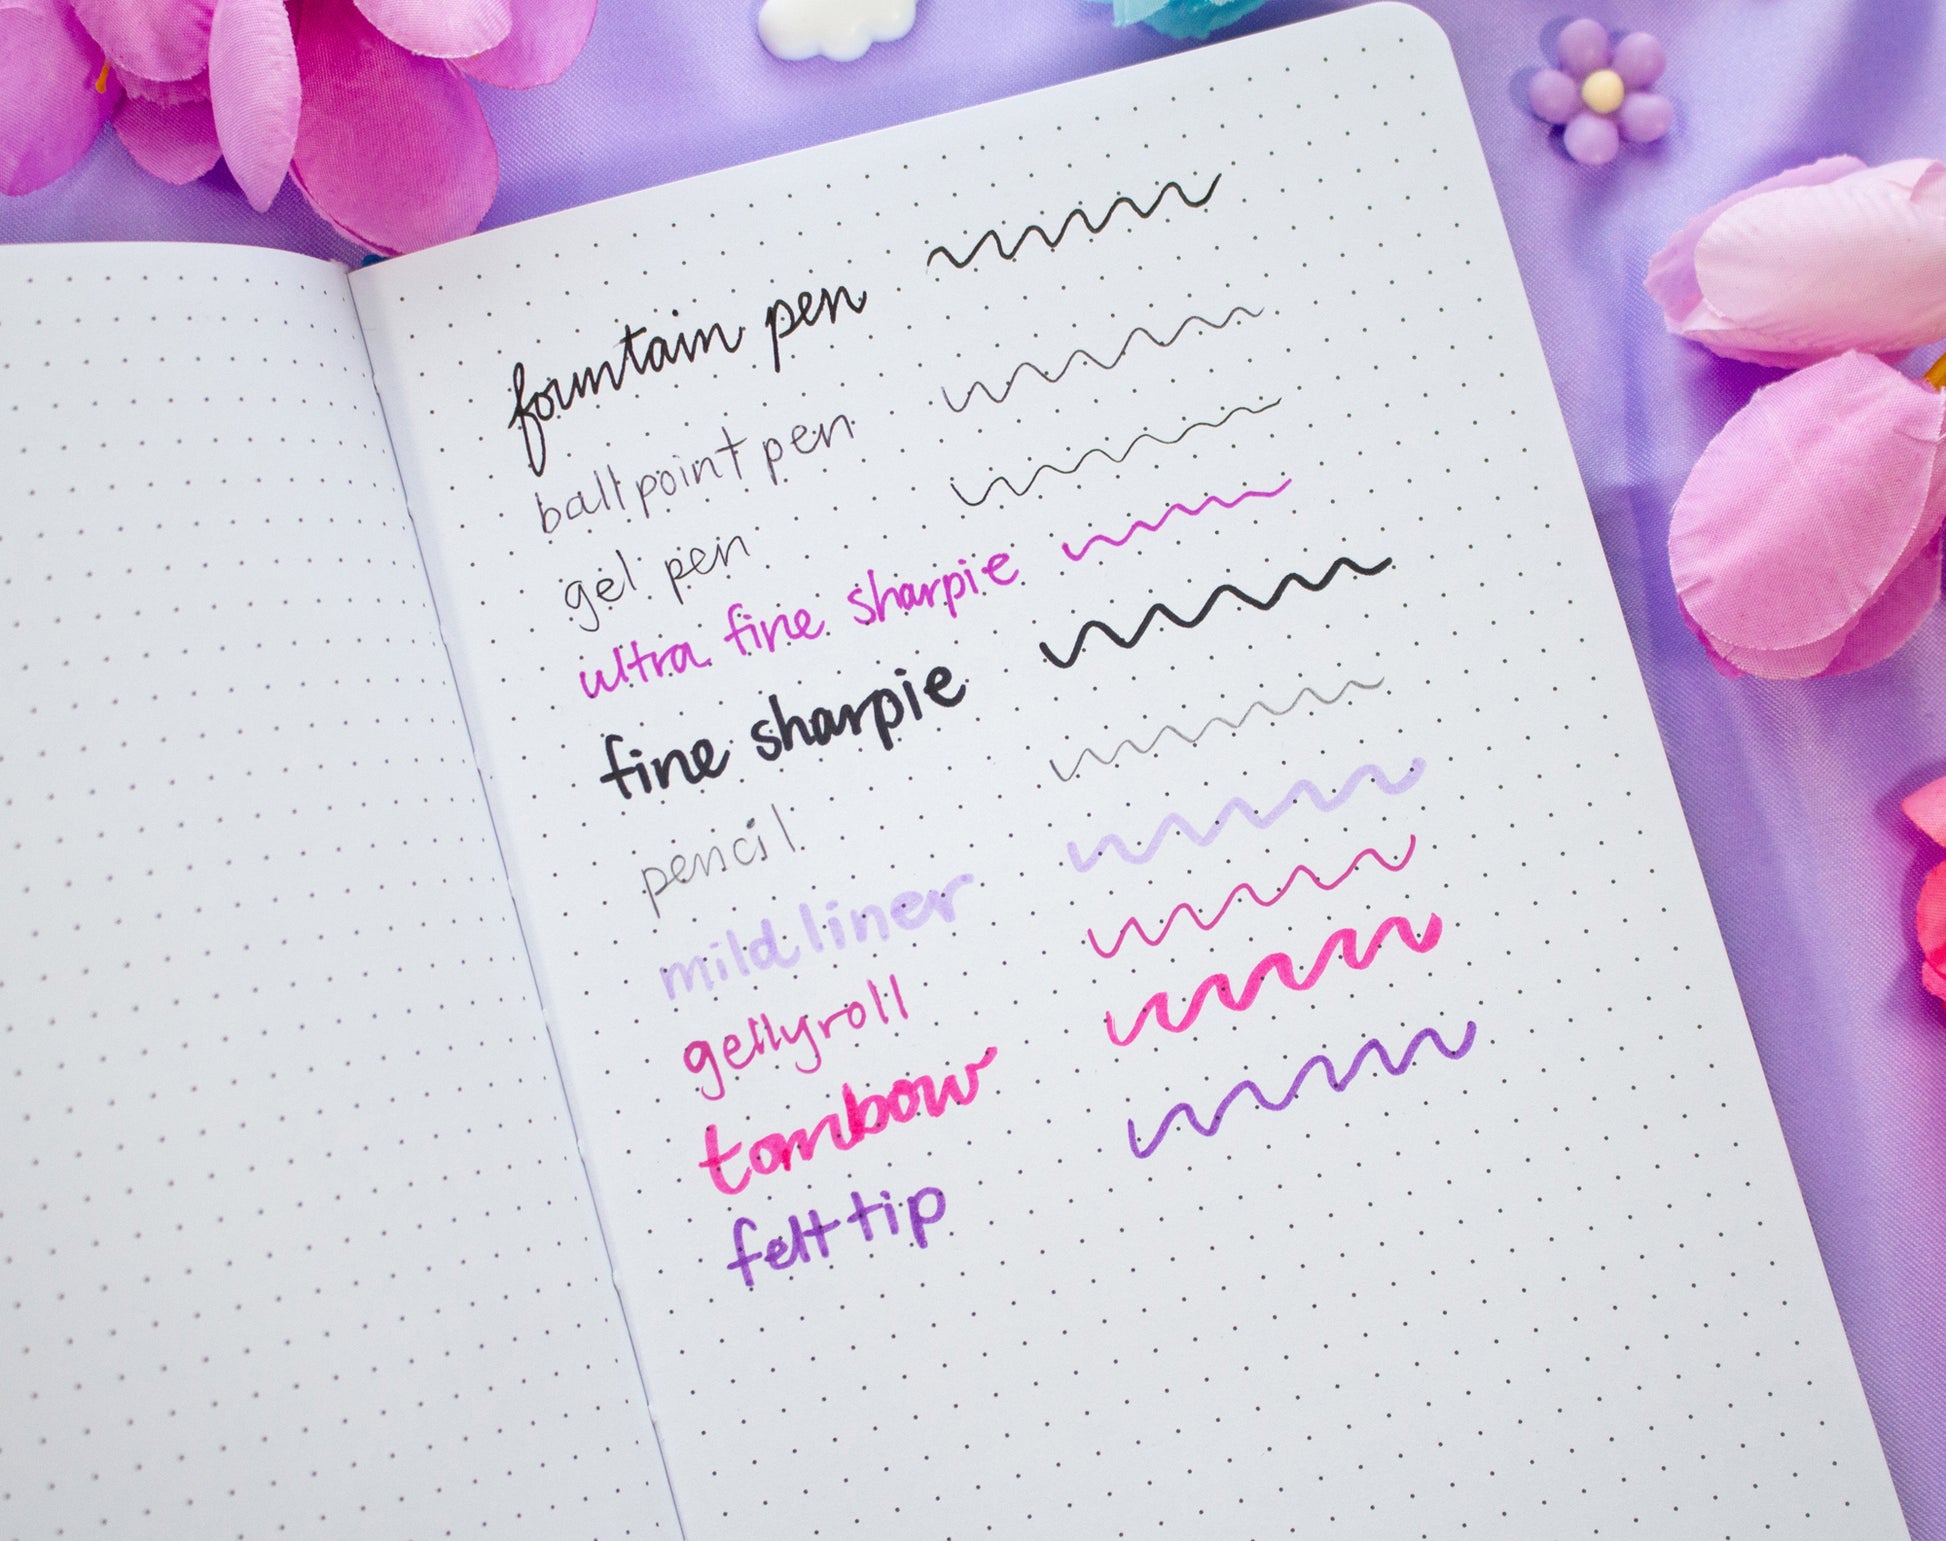 fountain pen
ballpoint pen
gel pen
ultra fine sharpie
fine sharpie
pencil
mildliner
gellyroll
tombow
felt tip